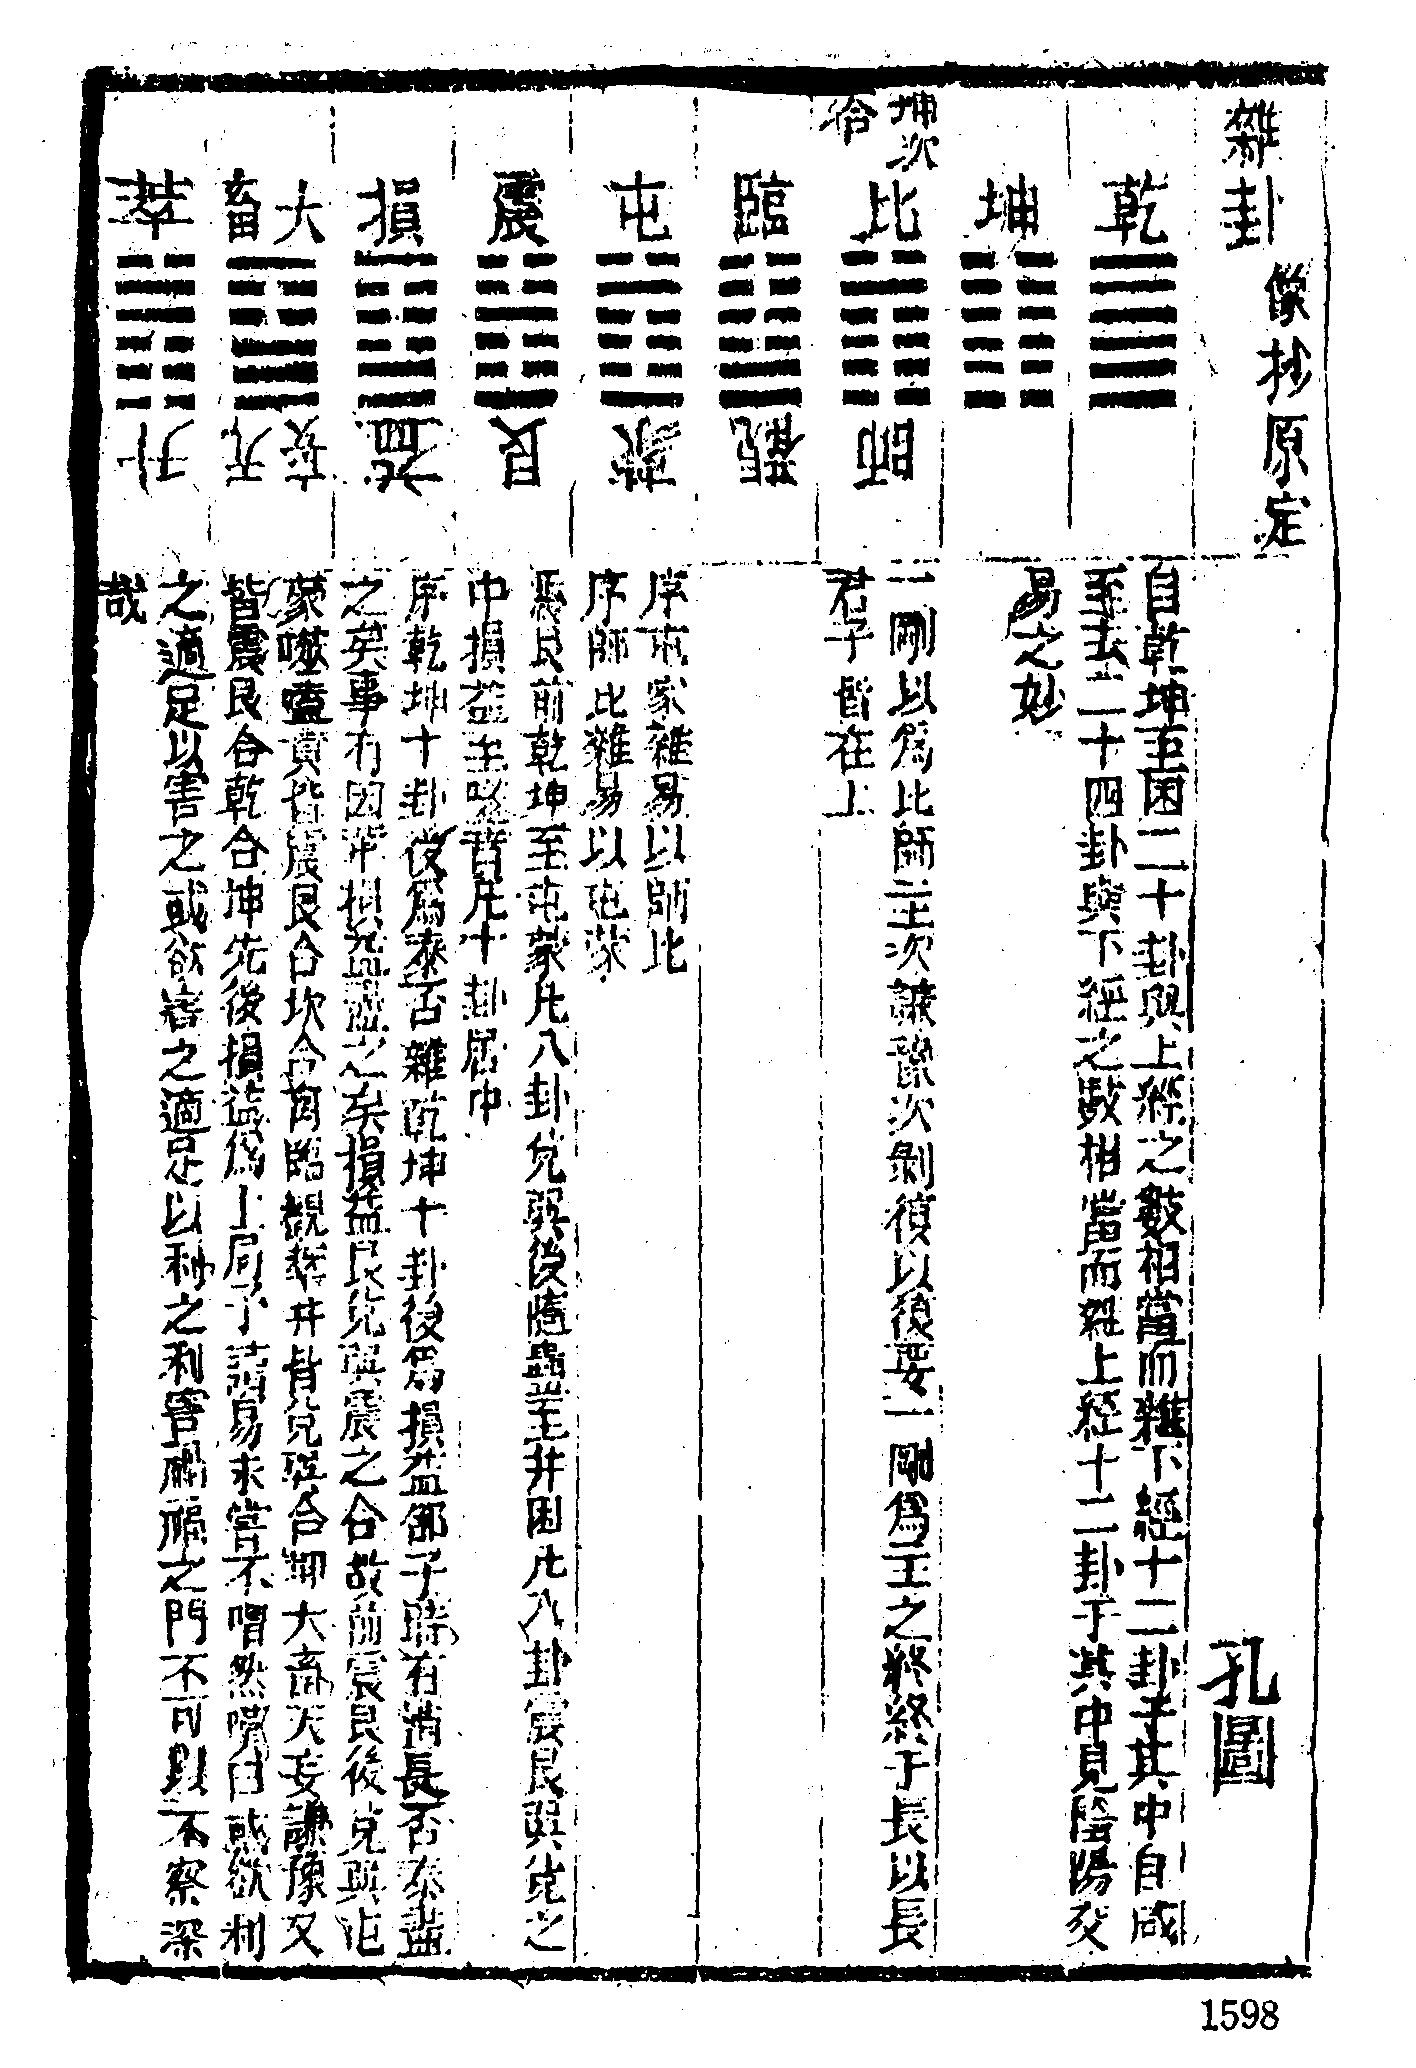 雜卦
像抄原定
孔圖
乾
坤
坤次
比
師
冾
臨
觀
屯
蒙
震
艮
損
益
大畜
无妄
萃
升
自乾坤至困二十卦與上經之數相當而雜下經十二卦于其中自咸
至夬二十四卦與下經之數相當而雜上經十二卦于其中見陰陽交
易之妙
一剛以爲比師之主次謙豫次剝復以復要一剛爲主之終終于長以長
君子皆在上
序屯蒙雜易以師比
序師比雜易以屯蒙
震艮前乾坤至屯蒙凡八卦兌巽後隨蠱至井困凡八卦震艮巽兌之
中損益至噬賁凡十卦居中
序乾坤十卦後爲泰否雜乾坤十卦後爲損益卻子時有消長否泰盡
之矣事有因革損益盡之矣損益艮兌巽震之合故前震艮後兌巽屯
蒙噬嗑賁皆震艮合坎合离臨觀萃井皆兌巽合坤大畜无妄謙豫又
皆震艮合乾合坤先後損益爲上局子讀易未嘗不喟然嘆曰或欲利
之適足以害之或欲害之適足以利之利害禍福之門不可以不察深
哉
1598